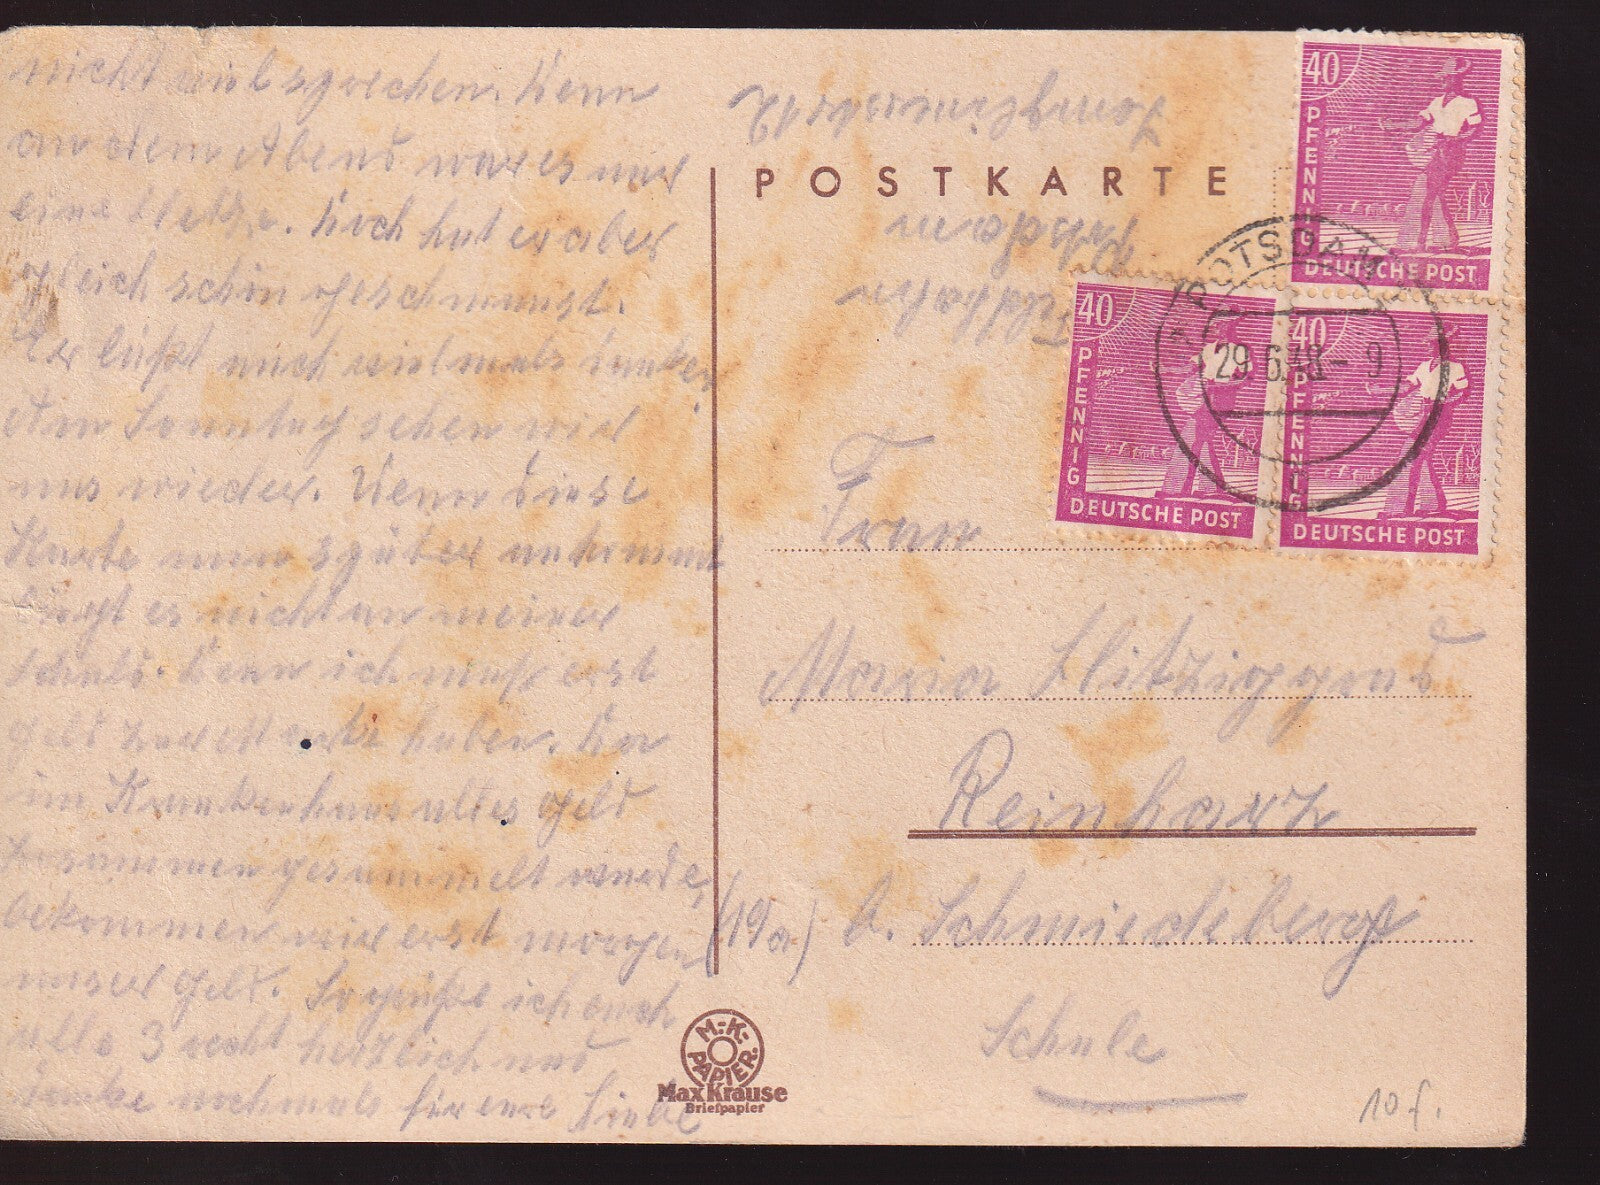 nicht viel sprechen. Denn
an dem Abend war es nur
eine Hetze. Doch hat er aber
gleich schön geschmaust.
Er läßt auch vielmals danken
Am Sonntag sehen wir
uns wieder. Wenn diese
Karte nun später ankommt
liegt es nicht an meiner
Schuld. Denn ich muß erst
Geld zur Marke haben. Da
im Krankenhaus altes Geld
zusammen gesammelt wurde,
bekommen wir erst morgen
unser Geld. So grüße ich euch
alle 3 recht herzlich und
danke nochmals für eure Liebe
POSTKARTE
Potsdam
40
PFENNIG
DEUTSCHE POST
40
PFENNIG
DEUTSCHE POST
40
PFENNIG
DEUTSCHE POST
POTSDAM
29.6.48.- 9
Frau
Maria
Reinharz
(19a) b. Schmiedeberg
Schule
M.-K.-PAPIER.
Max Krause
Briefpapier
10 f.